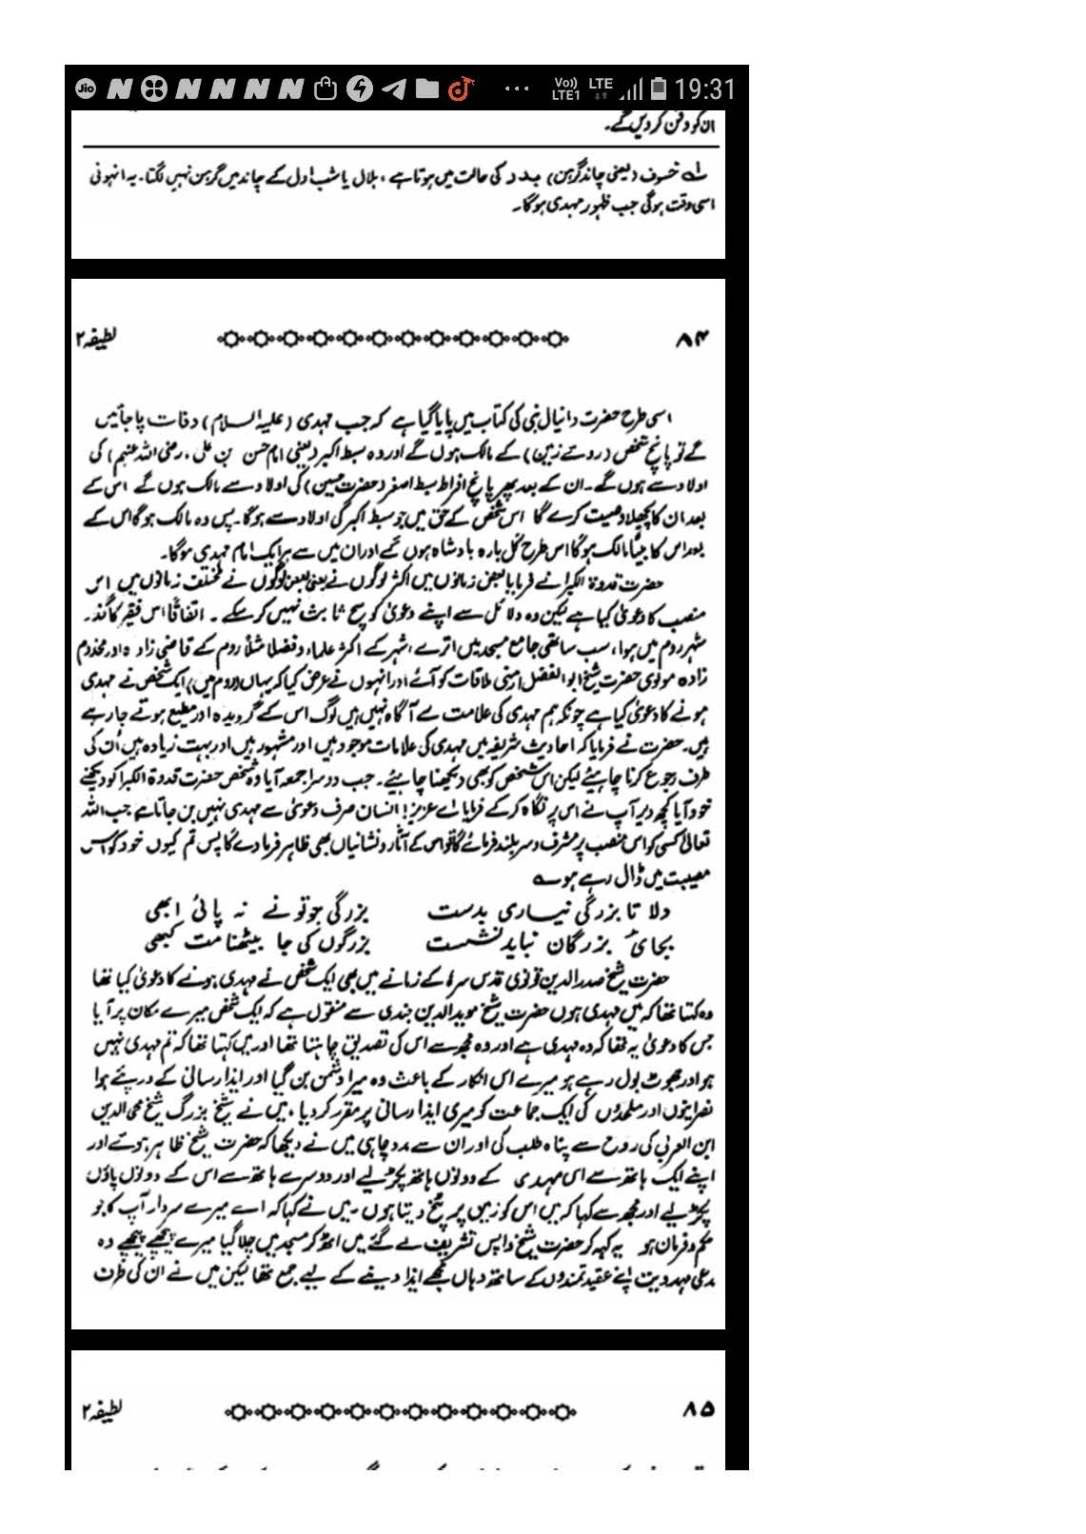 19:31
ان کو دفن کر دیں گے۔
لہ خسوف (یعنی چاند گرہن) بدر کی حالت میں ہوتا ہے، ہلال یا شب اول کے چاند میں گرہن نہیں لگتا۔ یہ انہونی
اسی وقت ہوگی جب ظہور مہدی ہوگا۔
۸۴ لطیفہ ۲
اسی طرح حضرت دانیال نبی کی کتاب میں پایا گیا ہے کہ جب مہدی (علیہ السلام) وفات پا جائیں
گے تو پانچ شخص (روئے زمین) کے مالک ہوں گے اور وہ سبط اکبر (یعنی امام حسن بن علی، رضی اللہ عنہم) کی
اولاد سے ہوں گے۔ ان کے بعد پھر پانچ افراط سبط اصغر (حضرت حسین) کی اولاد سے مالک ہوں گے اس کے
بعد ان کا پچھلا وصیت کرے گا اس شخص کے حق میں جو سبط اکبر کی اولاد سے ہوگا۔ پس وہ مالک ہوگا اس کے
بعد اس کا بیٹا مالک ہوگا اس طرح کل بارہ بادشاہ ہوں گے اور ان میں سے ہر ایک امام مہدی ہوگا۔
حضرت قدوۃ الکبرا نے فرمایا بعض زمانوں میں اکثر لوگوں نے یعنی بعض لوگوں نے مختلف زمانوں میں اس
منصب کا دعویٰ کیا ہے لیکن وہ دلائل سے اپنے دعویٰ کو سچ ثابت نہیں کر سکے۔ اتفاقاً اس فقیر کا گذر
شہر روم میں ہوا، سب ساتھی جامع مسجد میں اترے، شہر کے اکثر علماء و فضلا مثلاً روم کے قاضی زادہ اور مخدوم
زادہ مولوی حضرت شیخ ابوالفضل ارمنی ملاقات کو آئے اور انہوں نے عرض کیا کہ یہاں (روم میں) ایک شخص نے مہدی
ہونے کا دعویٰ کیا ہے چونکہ ہم مہدی کی علامت سے آگاہ نہیں ہیں لوگ اس کے گرویدہ اور مطیع ہوتے جا رہے
ہیں۔ حضرت نے فرمایا کہ احادیث شریفہ میں مہدی کی علامات موجود ہیں اور مشہور ہیں اور بہت زیادہ ہیں اُن کی
طرف رجوع کرنا چاہیئے لیکن اس شخص کو بھی دیکھنا چاہیئے۔ جب دوسرا جمعہ آیا وہ شخص حضرت قدوۃ الکبرا کو دیکھنے
خود آیا کچھ دیر آپ نے اس پر نگاہ کر کے فرمایا اے عزیز! انسان صرف دعویٰ سے مہدی نہیں بن جاتا ہے جب اللہ
تعالیٰ کسی کو اس منصب پر مشرف و سر بلند فرمائے گا تو اس کے آثار و نشانیاں بھی ظاہر فرما دے گا پس تم کیوں خود کو اس
مصیبت میں ڈال رہے ہو ؎
دلا تا بزرگی نیاری بدست بزرگی جو تو نے نہ پائی ابھی
بجای بزرگان نباید نشست بزرگوں کی جا بیٹھنا مت کبھی
حضرت شیخ صدر الدین قونوی قدس سرہٗ کے زمانے میں بھی ایک شخص نے مہدی ہونے کا دعویٰ کیا تھا
وہ کہتا تھا کہ میں مہدی ہوں حضرت شیخ موید الدین جندی سے منقول ہے کہ ایک شخص میرے مکان پر آیا
جس کا دعویٰ یہ تھا کہ وہ مہدی ہے اور وہ مجھ سے اس کی تصدیق چاہتا تھا اور میں کہتا تھا کہ تم مہدی نہیں
ہو اور جھوٹ بول رہے ہو میرے اس انکار کے باعث وہ میرا دشمن بن گیا اور ایذا رسانی کے درپئے ہوا
نصرانیوں اور ملحدوں کی ایک جماعت کو میری ایذا رسانی پر مقرر کر دیا، میں نے شیخ بزرگ شیخ محی الدین
ابن العربی کی روح سے پناہ طلب کی اور ان سے مدد چاہی میں نے دیکھا کہ حضرت شیخ ظاہر ہوئے اور
اپنے ایک ہاتھ سے اس مہدی کے دونوں ہاتھ پکڑ لیے اور دوسرے ہاتھ سے اس کے دونوں پاؤں
پکڑ لیے اور مجھ سے کہا کہ میں اس کو زمین پر پٹخ دیتا ہوں۔ میں نے کہا کہ اے میرے سردار آپ کا جو
حکم و فرمان ہو یہ کہہ کر حضرت شیخ واپس تشریف لے گئے میں اٹھ کر مسجد میں چلا گیا میرے پیچھے پیچھے وہ
مدعی مہدویت اپنے عقیدتمندوں کے ساتھ وہاں مجھے ایذا دینے کے لیے جمع تھا لیکن میں نے ان کی طرف
۸۵ لطیفہ ۲